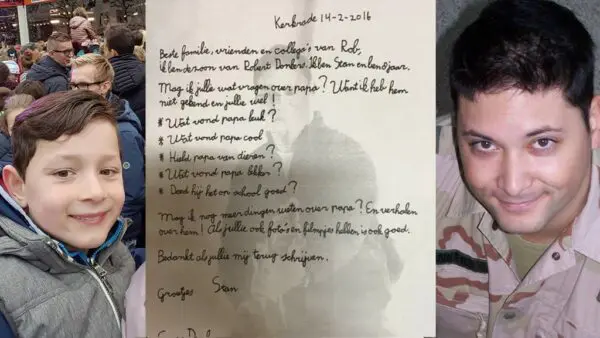 Kerkrade 14-2-2016
Beste familie, vrienden en collega's van Rob,
ik ben de zoon van Robert Donkers. Ik ben Sean en ben 8 jaar.
Mag ik jullie wat vragen over papa? Want ik heb hem
niet gekend en jullie wel!
* Wat vond papa leuk?
* Wat vond papa cool
* Hield papa van dieren?
* Wat vond papa lekker?
* Deed hij het op school goed?
Mag ik nog meer dingen weten over papa? En verhalen
over hem! Als jullie ook foto's en filmpjes hebben is ook goed.
Bedankt als jullie mij terug schrijven.
Groetjes Sean